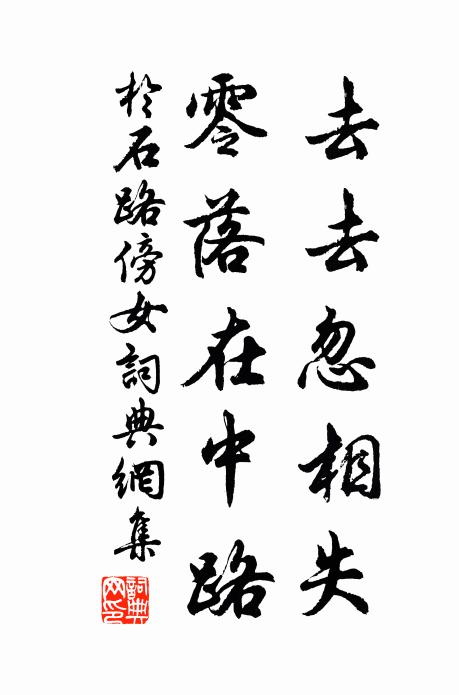 去去忽相失
零落在中路
於石路傍女詞典網集
詞典
网印